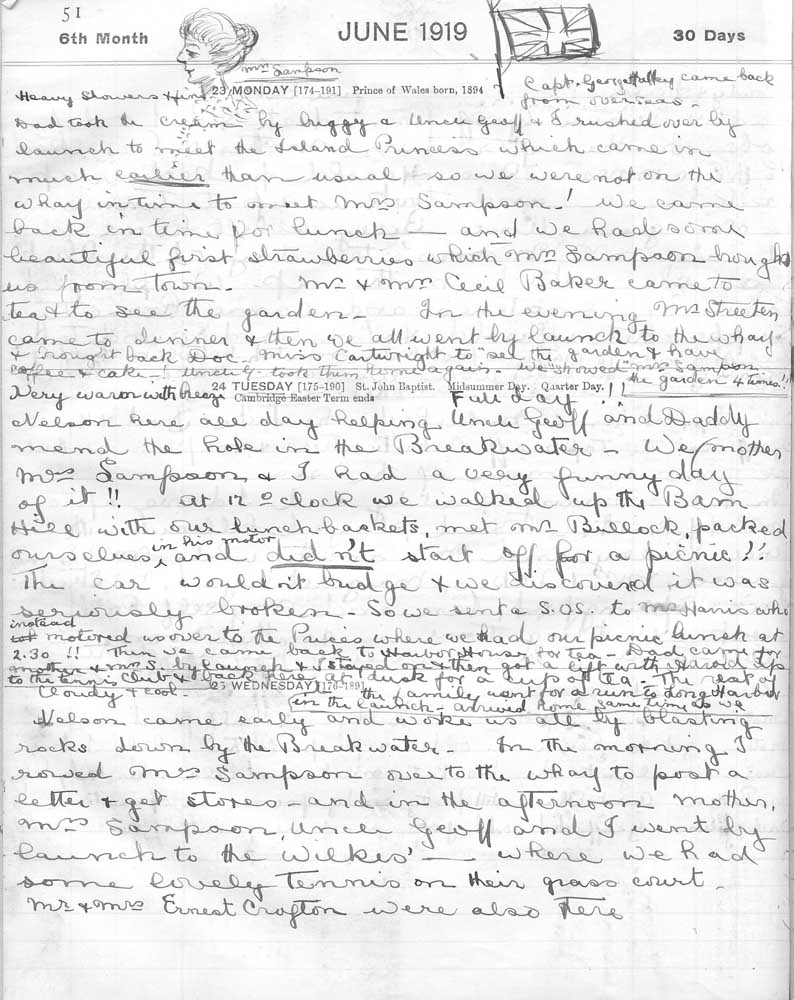 51
6th Month JUNE 1919 30 Days
Mrs Sampson
23 MONDAY [174-191] Prince of Wales born, 1894
Capt. George Halley came back
from overseas -
Heavy Showers & fine
Dad took the cream by buggy & Uncle Geoff & I rushed over by
launch to meet the Island Princess which came in
much earlier than usual so we were not on the
wharf in time to meet Mrs Sampson! We came
back in time for lunch - and we had some
beautiful first strawberries which Mrs Sampson brought
us from town - Mr & Mrs Cecil Baker came to
tea & to see the garden - In the evening Mrs Streeten
came to dinner & then we all went by launch to the wharf
& brought back Doc. Miss Cartwright to "see the garden & have
coffee & cake! Uncle G. took them home again. We "showed" Mrs Sampson
the garden 4 times!!
24 TUESDAY [175-190] St. John Baptist. Midsummer Day. Quarter Day.
Cambridge Easter Term ends
Very warm with breeze Full day!!
Nelson here all day helping Uncle Geoff and Daddy
mend the hole in the Breakwater - We (mother
Mrs Sampson & I had a very funny day
of it!! at 12 o'clock we walked up the Barn
Hill with our lunch baskets, met Mr Bullock, packed
ourselves in his motor and didn't start off for a picnic!!
The car wouldn't budge & we discovered it was
seriously broken - So we sent a S.O.S. to Mr Harris who
instead motored us over to the Prices where we had our picnic lunch at
2.30!! Then we came back to Harbor House for tea - Dad came for
mother & Mrs S. by launch & I stayed on & then got a lift with Harold up
to the tennis club & back here at dusk for a cup of tea - The rest of
the family went for a run to Long Harbor
in the launch - arrived home same time as we
25 WEDNESDAY [176-189]
Cloudy & cool -
Nelson came early and woke us all by blasting
rocks down by the Breakwater - In the morning I
rowed Mrs Sampson over to the wharf to post a
letter & get stores - and in the afternoon mother,
Mrs Sampson, Uncle Geoff and I went by
launch to the Wilkes' - where we had
some lovely Tennis on their grass court -
Mr & Mrs Ernest Crofton were also here